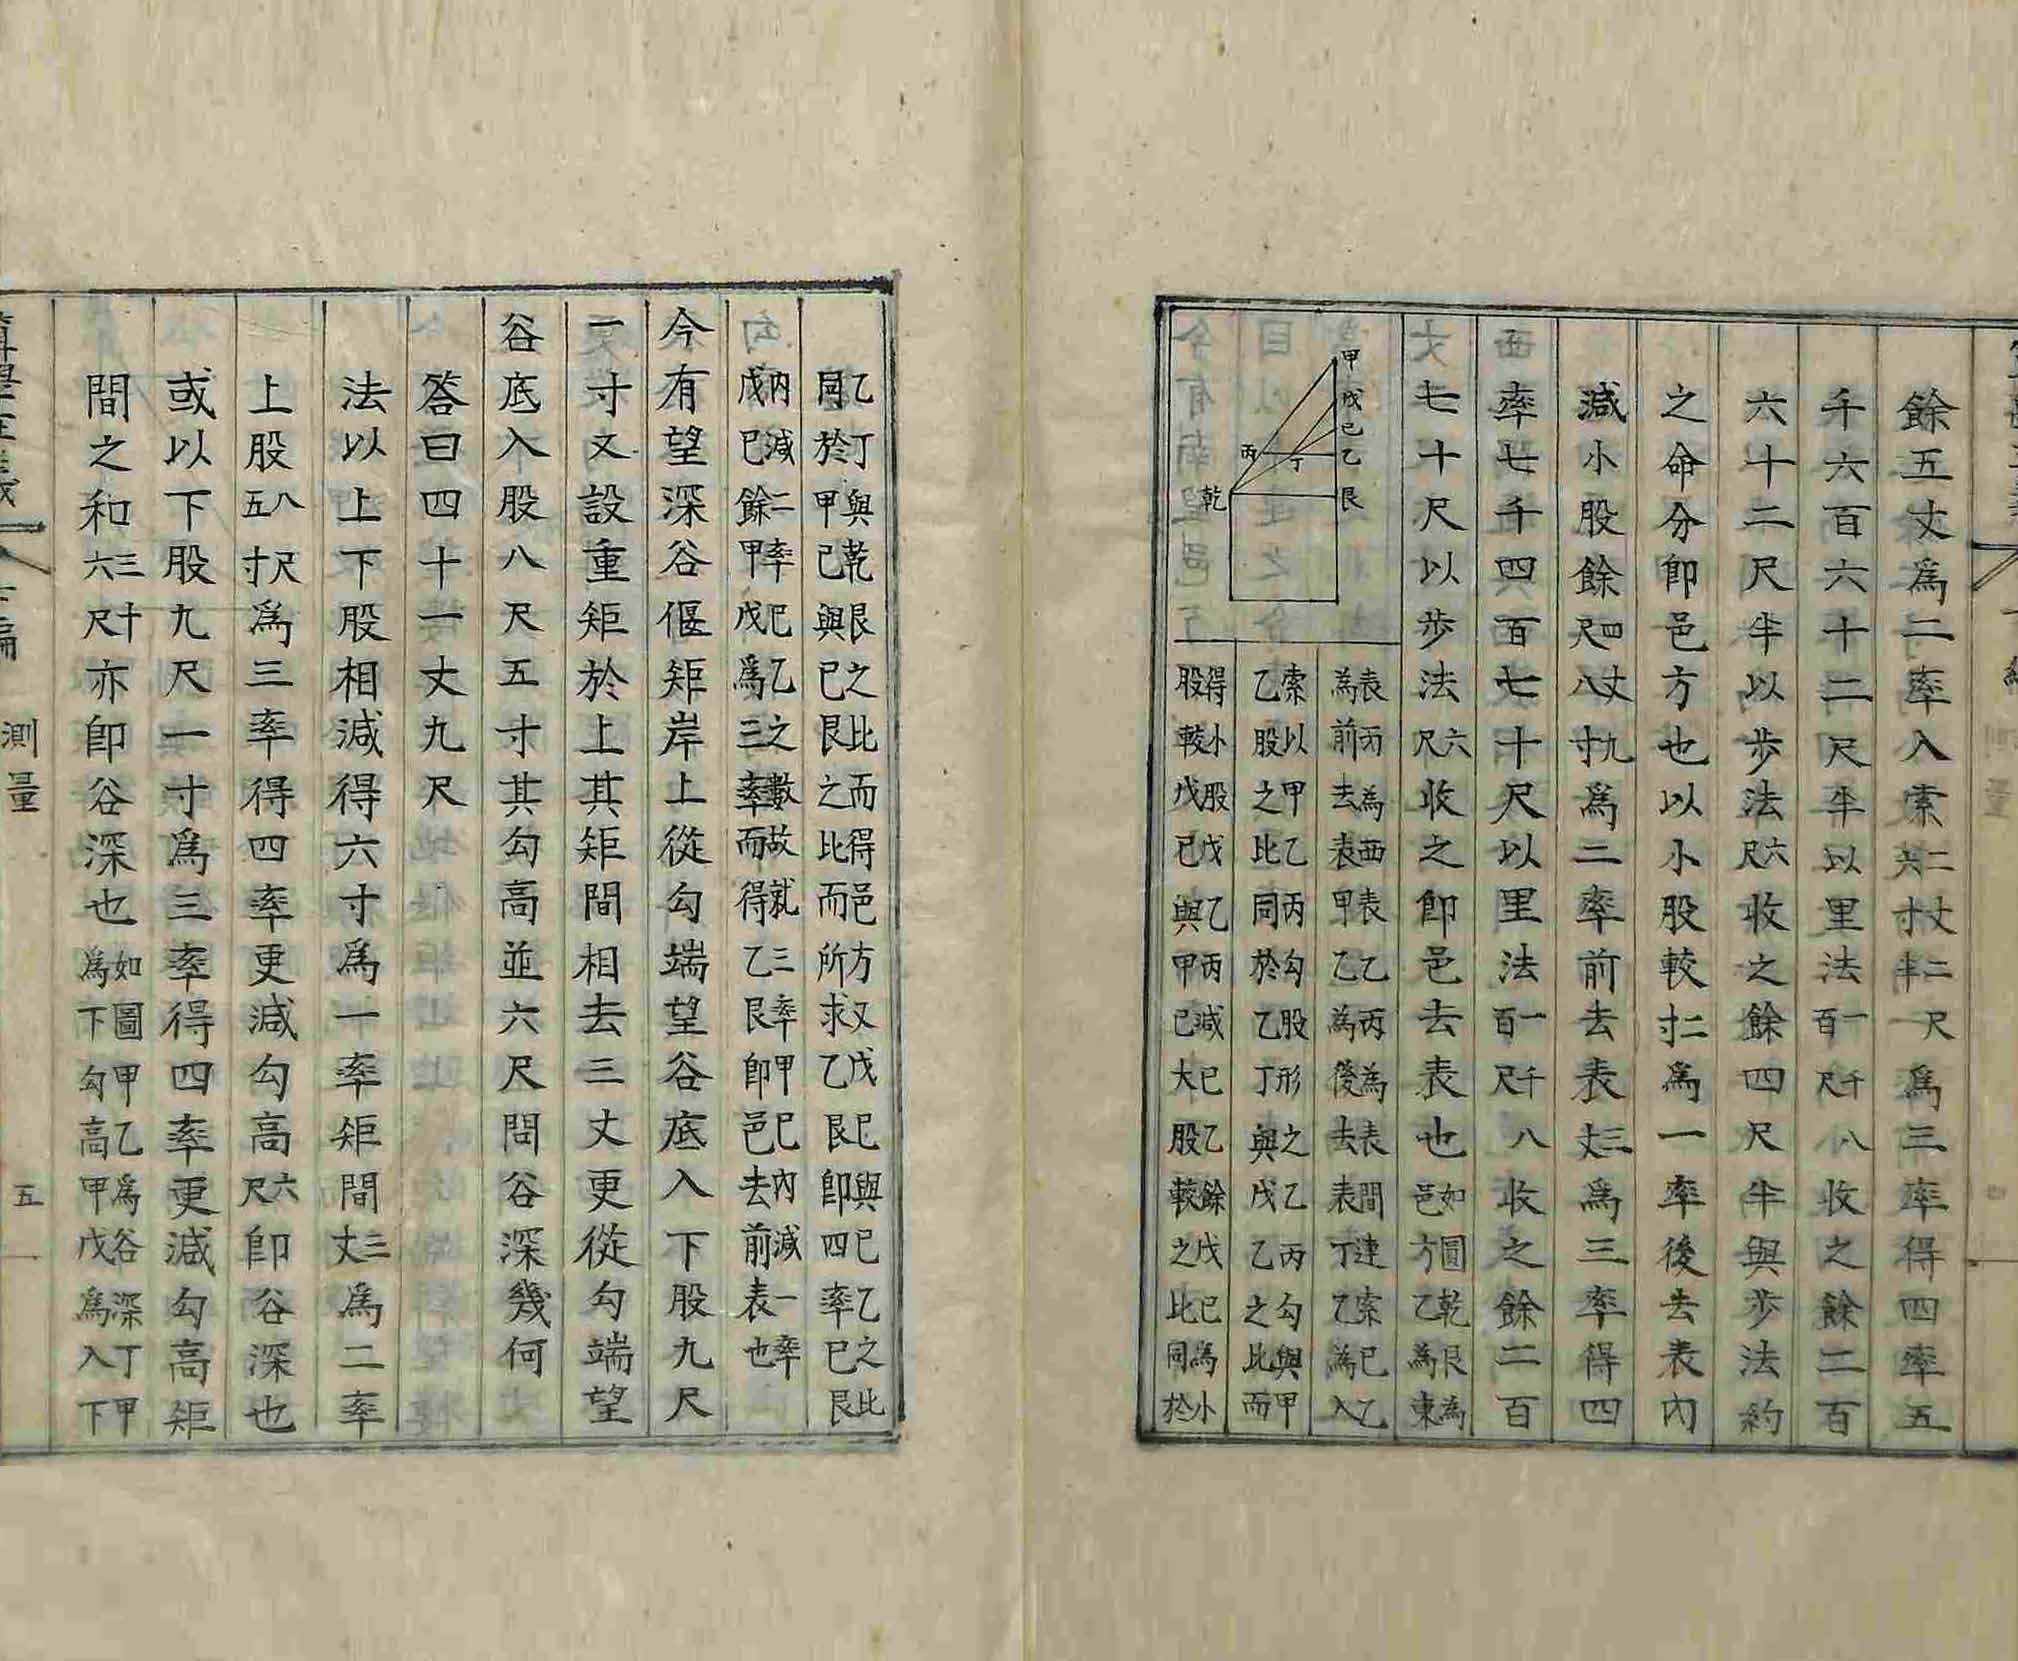 餘五丈爲二率入索二丈二尺六寸半爲三率得四率五
千六百六十二尺半以里法一千八百尺收之餘二百
六十二尺半以步法六尺收之餘四尺半與步法約
之命分卽邑方也以小股較二寸爲一率後去表內
減小股餘四丈九尺八寸爲二率前去表三丈爲三率得四
率七千四百七十尺以里法一千八百尺收之餘二百
七十尺以步法六尺收之卽邑去表也如圖乾艮為邑方乙為東
表丙為西表乙丙為表間連索巳乙為前去表甲乙為後去表丁乙為入
索以甲乙丙勾股形之乙丙勾與甲乙股之比同於乙丁與戊乙之比而
得小股戊乙丙減巳乙餘戊巳為小股較戊巳與甲巳大股較之比同於
甲
戊
己
乙
艮
丙
丁
乾
乙丁與乾艮之比而得邑方又戊巳與巳乙之比同於甲巳與巳艮之比而所求乙艮卽四率巳艮
內減二率巳乙之數故就三率甲巳內減一率戊巳餘甲戊爲三率而得乙艮卽邑去前表也
今有望深谷偃矩岸上從勾端望谷底入下股九尺
一寸又設重矩於上其矩間相去三丈更從勾端望
谷底入股八尺五寸其勾高並六尺問谷深幾何
答曰四十一丈九尺
法以上下股相減得六寸爲一率矩間三丈爲二率
上股八尺五寸爲三率得四率更減勾高六尺卽谷深也
或以下股九尺一寸爲三率得四率更減勾高矩
間之和三十六尺亦卽谷深也如圖甲乙爲谷深丁甲爲下勾高甲戊爲入下
算學正義 上編 測量 五